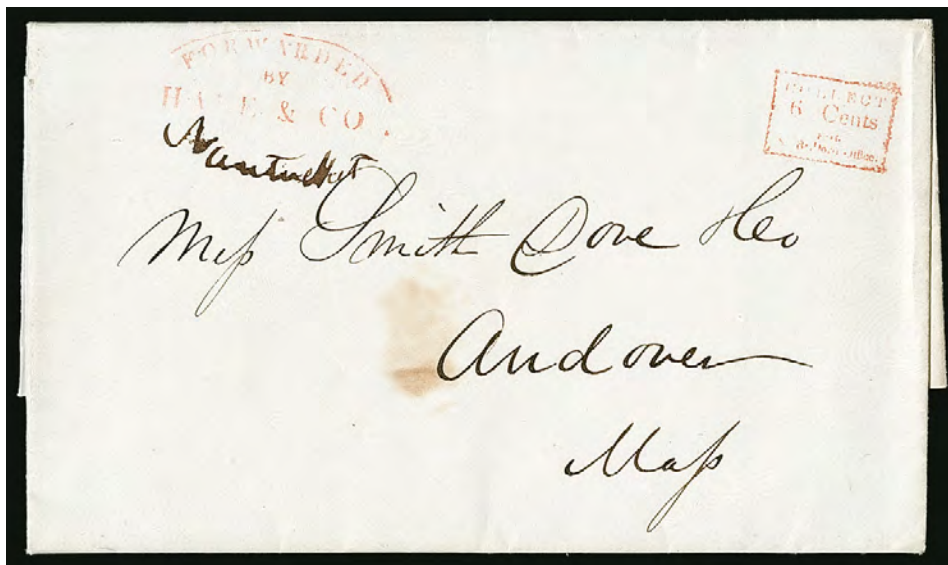 FORWARDED
BY
HALE & CO.
COLLECT
6 Cents
Office.
Nantucket
Mess Smith Dove &co
Andover
Mass